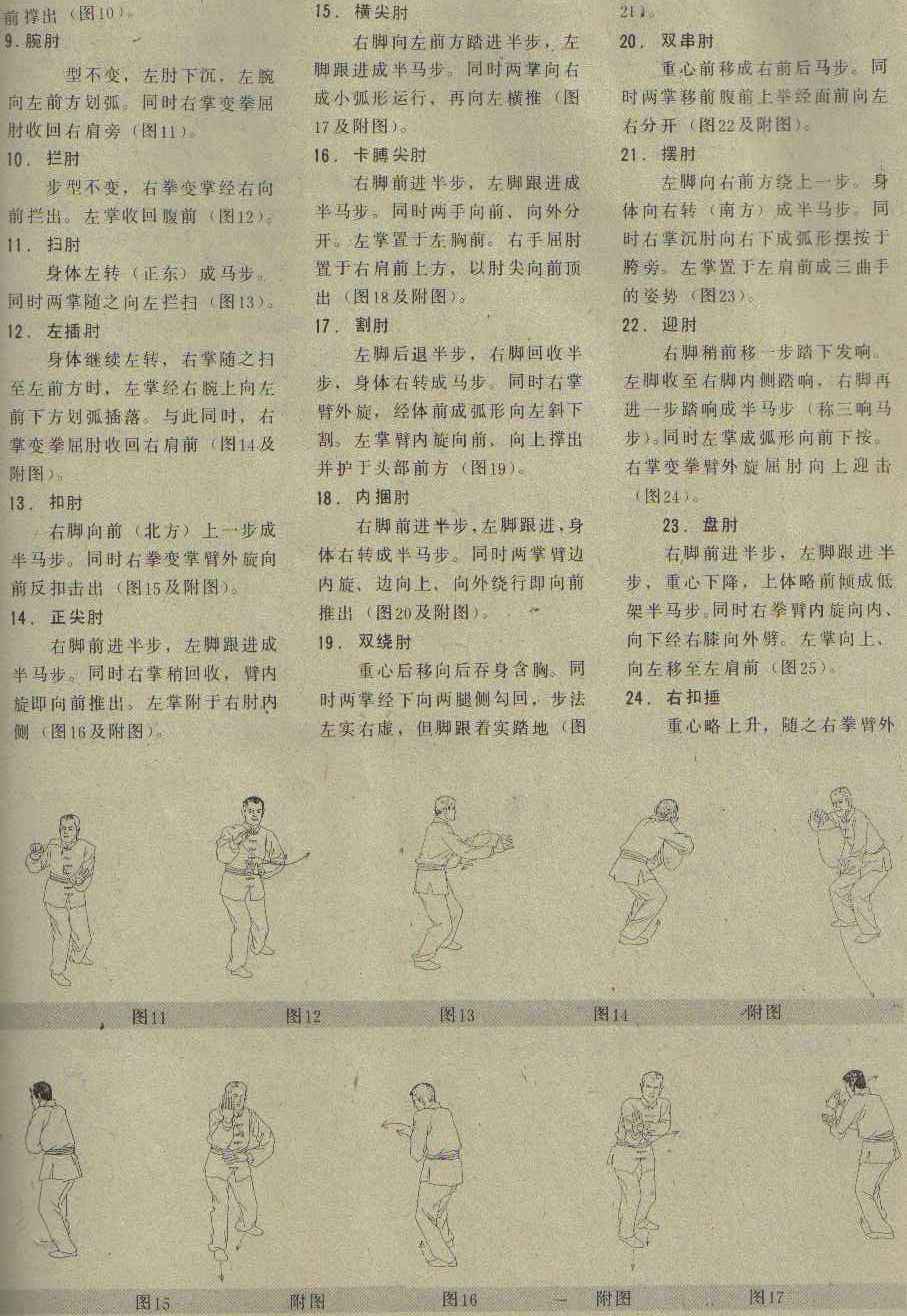 前撑出（图10）。
9．腕肘
型不变，左肘下沉，左腕
向左前方划弧。同时右掌变拳屈
肘收回右肩旁（图11）。
10．拦肘
步型不变，右拳变掌经右向
前拦出。左掌收回腹前（图12）。
11．扫肘
身体左转（正东）成马步。
同时两掌随之向左拦扫（图13）。
12．左插肘
身体继续左转，右掌随之扫
至左前方时，左掌经右腕上向左
前下方划弧插落。与此同时，右
掌变拳屈肘收回右肩前（图14及
附图）。
13．扣肘
右脚向前（北方）上一步成
半马步。同时右拳变掌臂外旋向
前反扣击出（图15及附图）。
14．正尖肘
右脚前进半步，左脚跟进成
半马步。同时右掌稍回收，臂内
旋即向前推出。左掌附于右肘内
侧（图16及附图）。
15．横尖肘
右脚向左前方踏进半步，左
脚跟进成半马步。同时两掌向右
成小弧形运行，再向左横推（图
17及附图）。
16．卡膊尖肘
右脚前进半步，左脚跟进成
半马步。同时两手向前、向外分
开。左掌置于左胸前。右手屈肘
置于右肩前上方，以肘尖向前顶
出（图18及附图）。
17．割肘
左脚后退半步，右脚回收半
步，身体右转成马步。同时右掌
臂外旋，经体前成弧形向左斜下
割。左掌臂内旋向前、向上撑出
并护于头部前方（图19）。
18．内捆肘
右脚前进半步，左脚跟进，身
体右转成半马步。同时两掌臂边
内旋、边向上、向外绕行即向前
推出（图20及附图）。
19．双绕肘
重心后移向后吞身含胸。同
时两掌经下向两腿侧勾回，步法
左实右虚，但脚跟着实踏地（图
21）。
20．双串肘
重心前移成右前后马步。同
时两掌移前腹前上举经面前向左
右分开（图22及附图）。
21．摆肘
左脚向右前方绕上一步。身
体向右转（南方）成半马步。同
时右掌沉肘向右下成弧形摆按于
胯旁。左掌置于左肩前成三曲手
的姿势（图23）。
22．迎肘
右脚稍前移一步踏下发响。
左脚收至右脚内侧踏响，右脚再
进一步踏响成半马步（称三响马
步）。同时左掌成弧形向前下按。
右掌变拳臂外旋屈肘向上迎击
（图24）。
23．盘肘
右脚前进半步，左脚跟进半
步，重心下降，上体略前倾成低
架半马步。同时右拳臂内旋向内、
向下经右膝向外劈。左掌向上、
向左移至左肩前（图25）。
24．右扣捶
重心略上升，随之右拳臂外
图11 图12 图13 图14 附图
图15 附图 图16 附图 图17